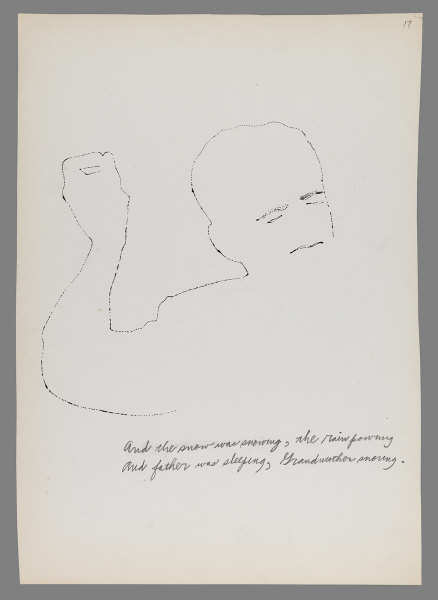 17
And the snow was snowing, the rain pouring
And father was sleeping, Grandmother snoring.